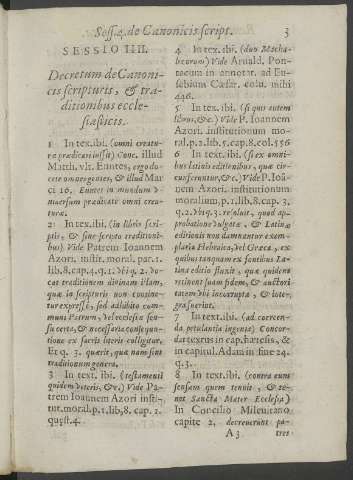 Sess. 4. de Canonicis script. 3
SESSIO IIII.
Decretum de Canoni-
cis scripturis, & tra-
ditionibus eccle-
siasticis.
1 In tex. ibi. (omni creatu-
ræ prædicari iussit) Conc. illud
Matth. vlt. Euntes, ergo do-
cete omnes gentes, & illud Mar
ci 16. Euntes in mundum v-
niuersum prædicate omni crea-
turæ.
2 In tex. ibi. (in libris scri-
ptis, & sine scripto traditioni-
bus) Vide Patrem Ioannem
Azori. instit. moral. par. 1.
lib. 8. cap. 4. q. 1. vbi q. 2. do-
cat traditionem diuinam illam,
quæ in scripturis non contine-
tur expressè, sed adhibito com-
muni Patrum, vel ecclesiæ sen-
su certa, & necessaria consequu-
tione ex sacris literis colligitur.
Et q. 3. quærit, quæ nam sint
traditionum genera.
3 In tex. ibi. (testamenti
quidem veteris, &c.) Vide Pa-
trem Ioannem Azori insti-
tut. moral. p. 1. lib. 8. cap. 2.
quæst. 4.
4 In tex. ibi. (duo Macha-
bæorum) Vide Arnald. Pon-
tacum in annotat. ad Eu-
sebium Cæsar. colu. mihi
446.
5 In tex. ibi. (si quis autem
libros, &c.) Vide P. Ioannem
Azori. institutionum mo-
ral. p. 1. lib. 5. cap. 8. col. 556
6 In tex. ibi. (si ex omni-
bus latinis editionibus, quæ cir-
cunferuntur, &c. Vide P. Ioā-
nem Azori. institutionum
moralium, p. 1. lib. 8. cap. 3.
q. 2. vbi q. 3. resoluit, quod ap-
probatione vulgatæ, & Latinæ
editionis non damnantur exem-
plaria Hebraica, vel Græca, ex
quibus tanquam ex fontibus La-
tina editio fluxit, quæ quidem
retinent suam fidem, & auctori
tatem vbi incorrupta, & inte-
gra sint.
7 In tex. ibi. (ad coercen-
da petulantia ingenia) Concor-
dat textus in cap. hæresis, &
in capitul. Adam in fine 24.
q. 3.
8 In tex. ibi. (contra eum
sensum quem tenuit, & te-
net Sancta Mater Ecclesia)
In Concilio Mileuitano
capite 2. decreuerunt pa-
A 3 tres